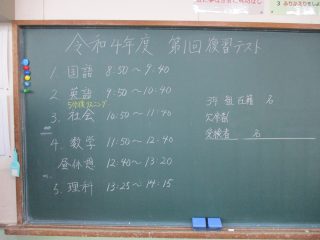 令和4年度 第1回復習テスト
1. 国語 8:50〜9:40
2. 英語 9:50〜10:40
5分後リスニング
3. 社会 10:50〜11:40
4. 数学 11:50〜12:40
昼休憩 12:40〜13:20
5. 理科 13:25〜14:15
3年 組 在籍 名
欠席者
受検者 名